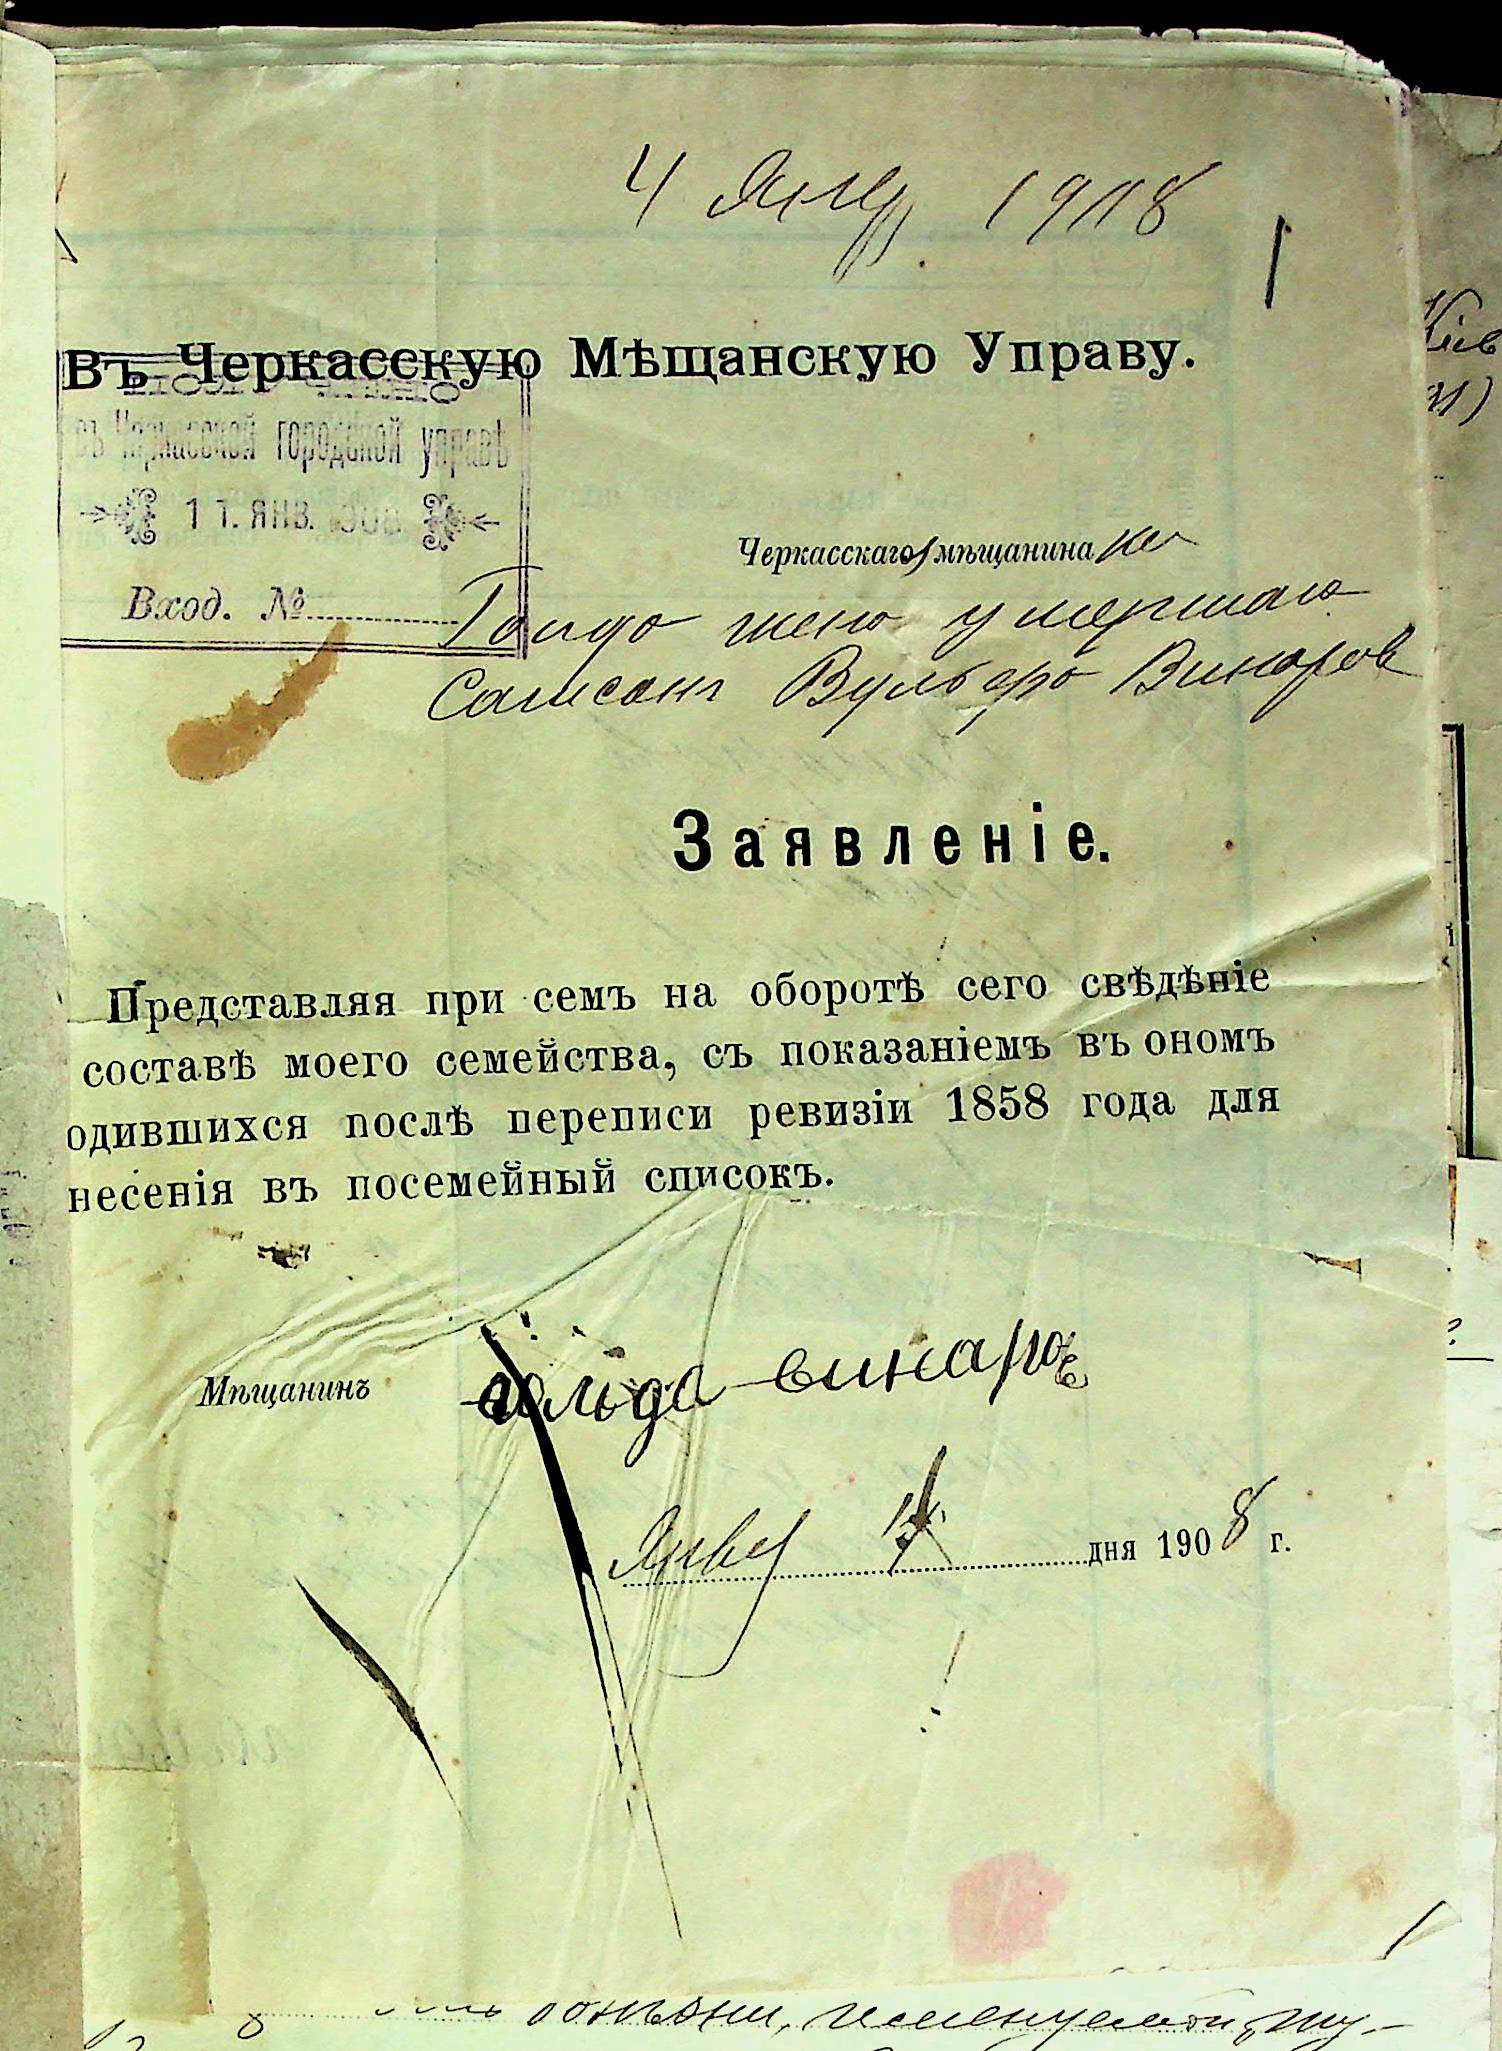 4 Янвр 1908
Въ Черкасскую Мѣщанскую Управу.
въ Черкасской городской управѣ
11. ЯНВ. 1908
Черкасскаго мѣщанина ки
Вход. №
Голда жена умершаго
Самсона Вульфа Винаров
Заявленіе.
Представляя при семъ на оборотѣ сего свѣдѣніе
составѣ моего семейства, съ показаніемъ въ ономъ
одившихся послѣ переписи ревизіи 1858 года для
несенія въ посемейный списокъ.
Мѣщанинъ Гольда винаров
Янвр дня 1908 г.